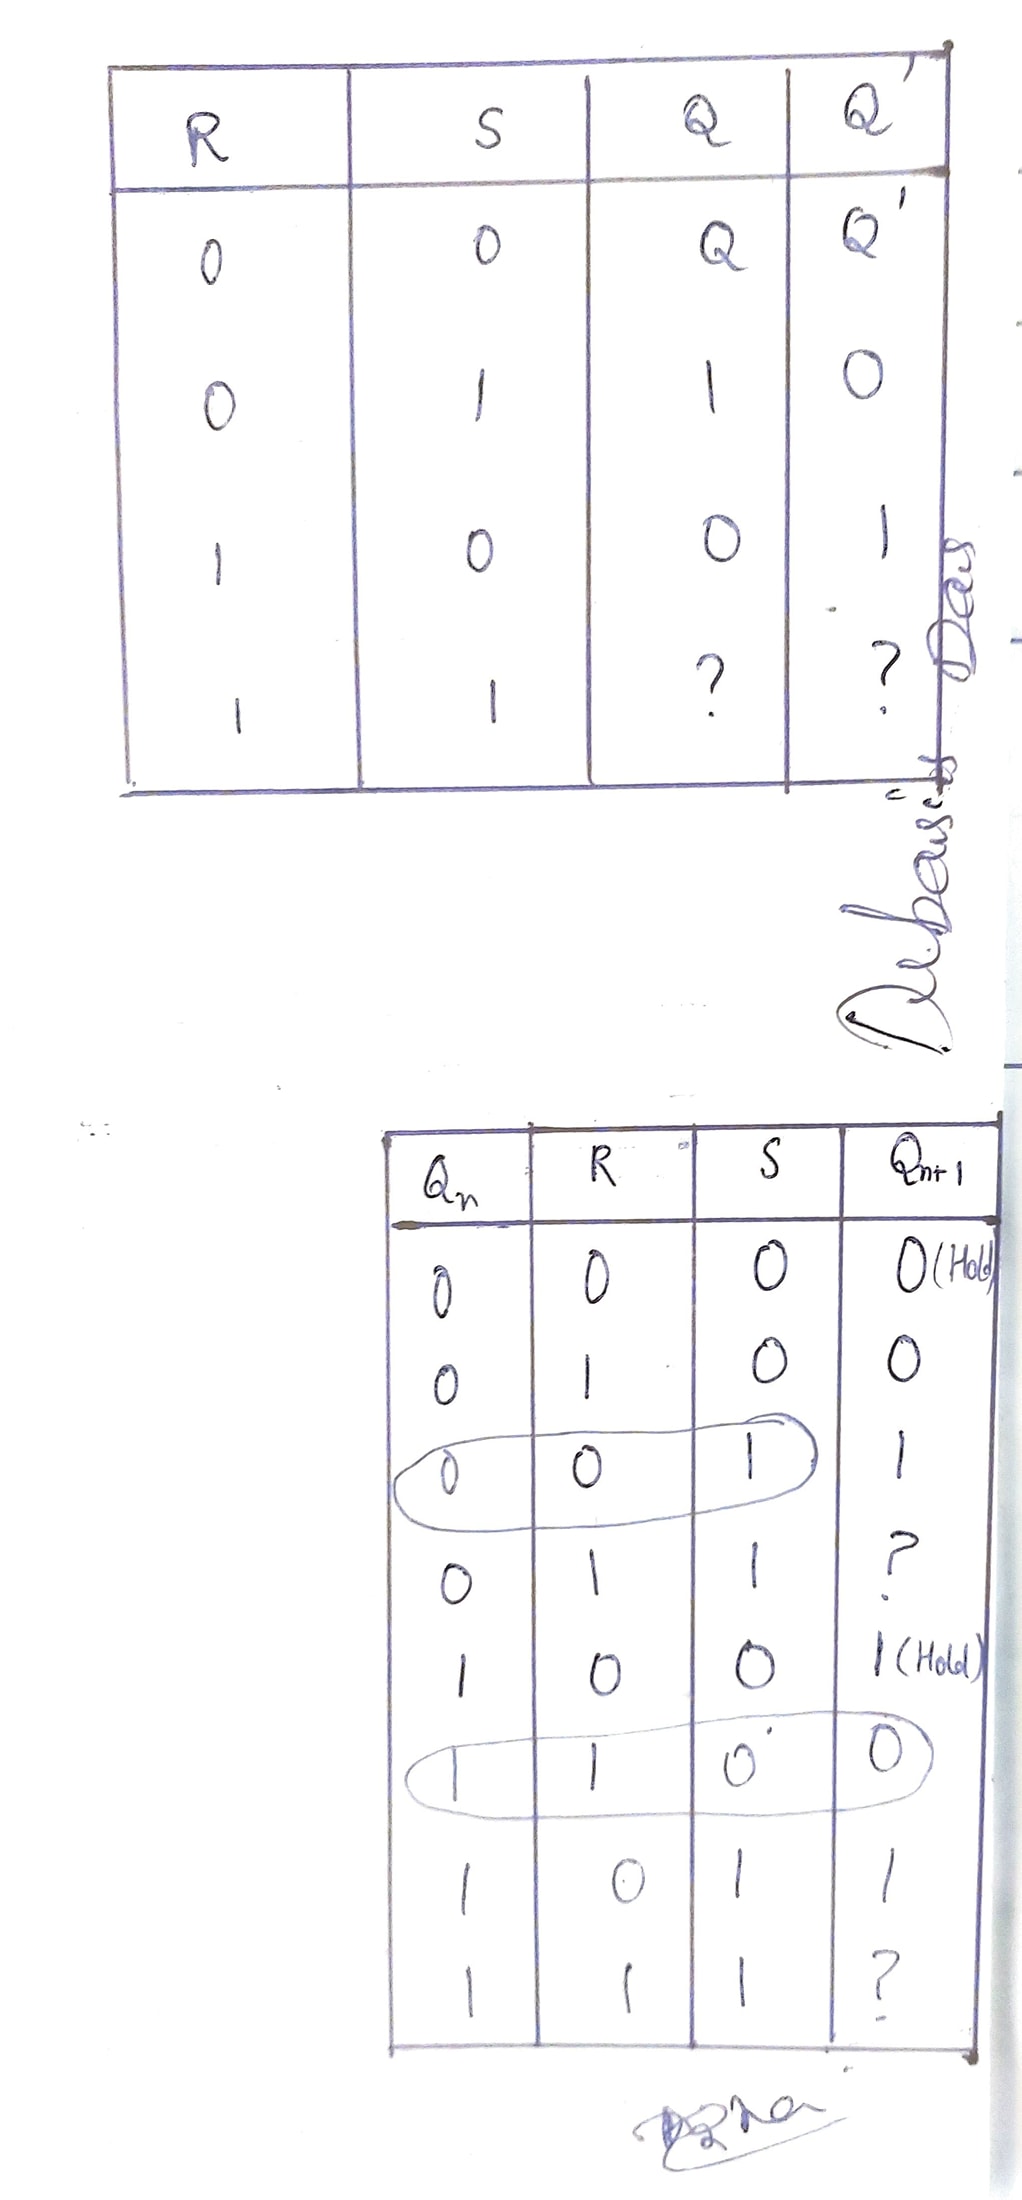 R S Q Q'
0 0 Q Q'
0 1 1 0
1 0 0 1
1 1 ? ?
Debasis Das
Qn R S Qn+1
0 0 0 0 (Hold)
0 1 0 0
0 0 1 1
0 1 1 ?
1 0 0 1 (Hold)
1 1 0 0
1 0 1 1
1 1 1 ?